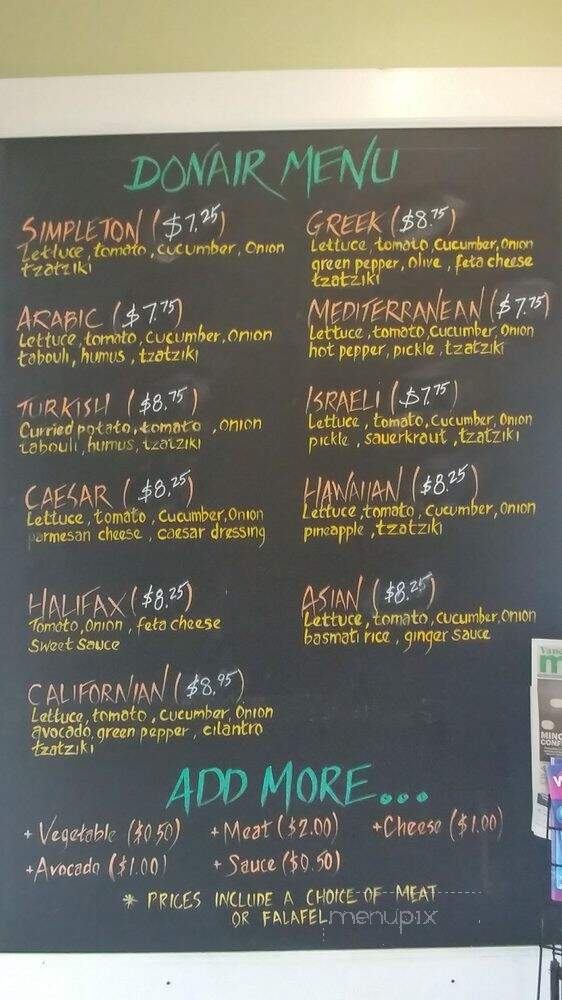 DONAIR MENU
SIMPLETON ($7.25)
Lettuce, tomato, cucumber, onion
tzatziki
ARABIC ($7.75)
Lettuce, tomato, cucumber, onion
tabouli, humus, tzatziki
TURKISH ($8.75)
Curried potato, tomato , onion
tabouli, humus, tzatziki
CAESAR ($8.25)
Lettuce, tomato, cucumber, onion
parmesan cheese, caesar dressing
HALIFAX ($8.25)
Tomato, onion, feta cheese
sweet sauce
CALIFORNIAN ($8.95)
Lettuce, tomato, cucumber, onion
avocado, green pepper, cilantro
tzatziki
GREEK ($8.75)
Lettuce, tomato, cucumber, onion
green pepper, olive, feta cheese
tzatziki
MEDITERRANEAN ($7.75)
Lettuce, tomato, cucumber, onion
hot pepper, pickle, tzatziki
ISRAELI ($7.75)
Lettuce, tomato, cucumber, onion
pickle, sauerkraut, tzatziki
HAWAIIAN ($8.25)
Lettuce, tomato, cucumber, onion
pineapple, tzatziki
ASIAN ($8.25)
Lettuce, tomato, cucumber, onion
basmati rice, ginger sauce
ADD MORE...
+ Vegetable ($0.50) + Meat ($2.00) + Cheese ($1.00)
+ Avocado ($1.00) + Sauce ($0.50)
* PRICES INCLUDE A CHOICE OF MEAT
OR FALAFEL
menupix